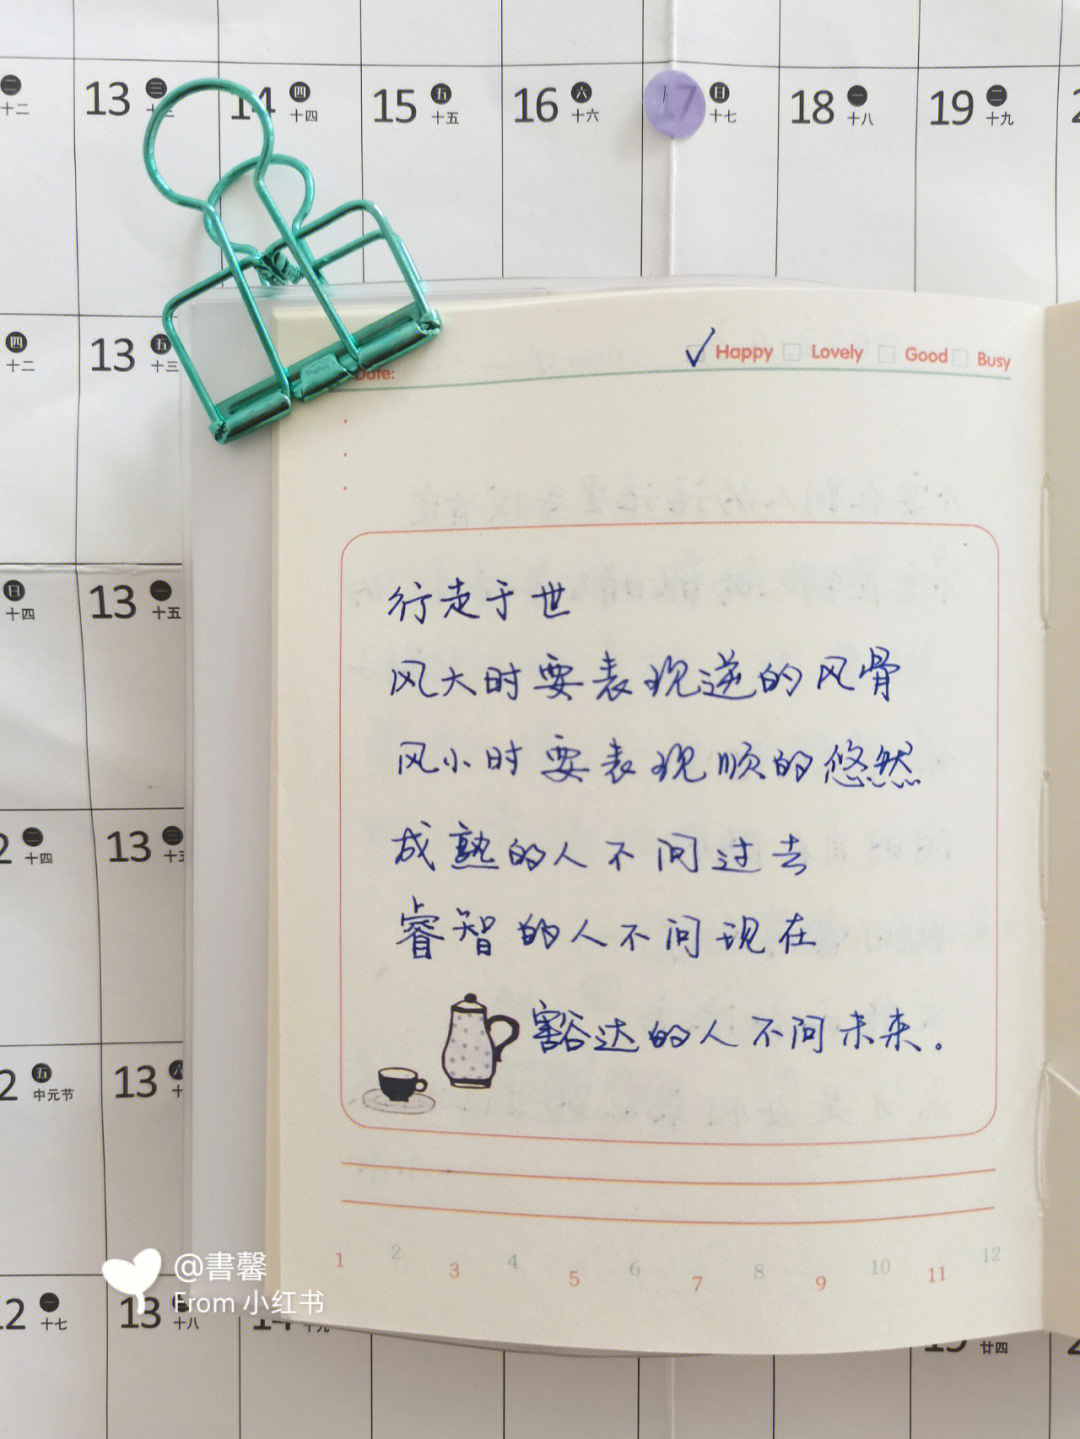 二 13 三 14 四 15 五 16 六 17 日 18 一 19 二
十二 十三 十四 十五 十六 十七 十八 十九
四 13 五
十二 十三
Happy Lovely Good Busy
Date:
日 13 一
十四 十五
行走于世
风大时要表现逆的风骨
风小时要表现顺的悠然
2 二 13 三
十四 十五
成熟的人不问过去
睿智的人不问现在
豁达的人不问未来。
2 五 13 六
中元节
1 2 3 4 5 6 7 8 9 10 11 12
@書馨
From 小红书
12 一 13
十七 十八 14 十九
廿四